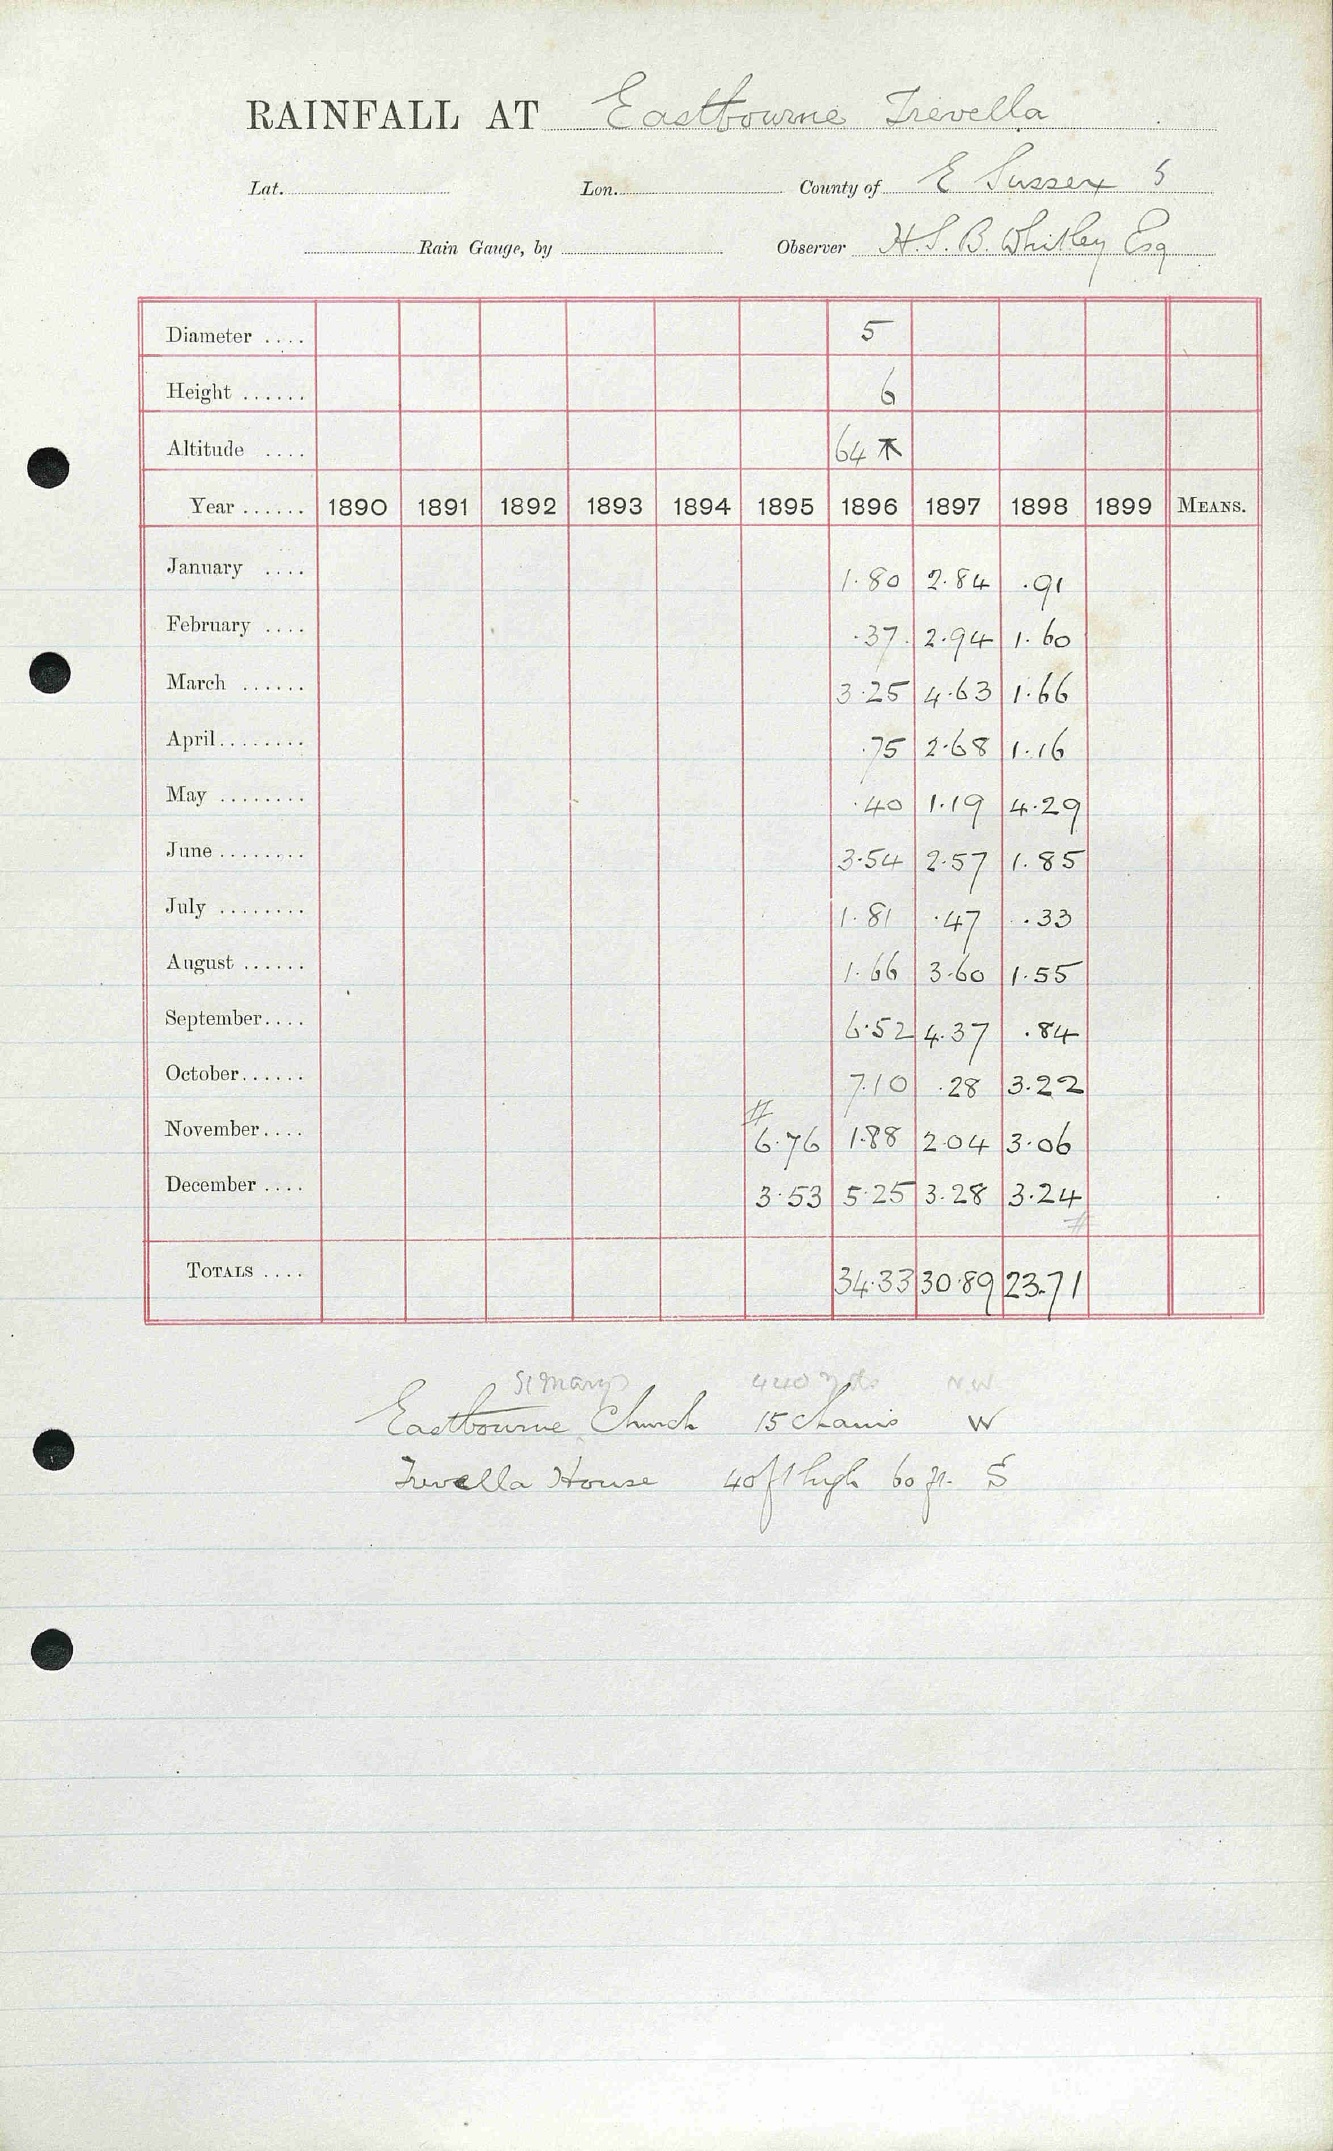 RAINFALL AT Eastbourne Trevella
Lat. Lon. County of E Sussex 5
Rain Gauge, by Observer H. S. B. Whitley Esq
Diameter .... 5
Height ...... 6
Altitude .... 64
Year ...... 1890 1891 1892 1893 1894 1895 1896 1897 1898 1899 MEANS.
January .... 1.80 2.84 .91
February .... .37 2.94 1.60
March ...... 3.25 4.63 1.66
April........ .75 2.68 1.16
May ........ .40 1.19 4.29
June ........ 3.54 2.57 1.85
July ........ 1.81 .47 .33
August ...... 1.66 3.60 1.55
September.... 6.52 4.37 .84
October...... 7.10 .28 3.22
#
November.... 6.76 1.88 2.04 3.06
December .... 3.53 5.25 3.28 3.24
#
TOTALS .... 34.33 30.89 23.71
St Marys 440 yds NW
Eastbourne Church 15 chains W
Trevella House 40 ft high 60 ft. S